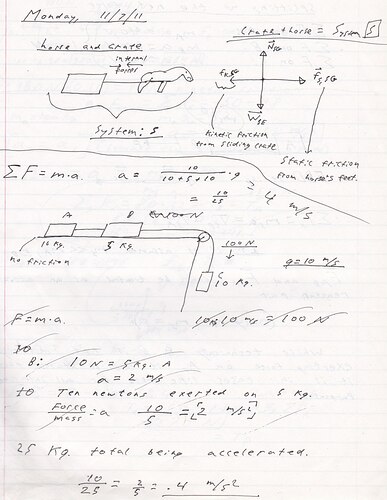 Monday, 11/7/11
Crate + horse = System S
horse and crate
internal
forces
N SG
fK,SG
Fs, SG
W SE
System: S
Kinetic friction
from sliding crate
Static friction
from horse's feet.
ΣF = m·a. a = 10 / 10+5+10 · g
= 10/25 = .4 m/s
A B 100 N
10 Kg. 5 Kg.
no friction
100 N
C
10 Kg.
g = 10 m/s
F = m·a. 10 Kg 10 m/s = 100 N
10
B: 10 N = 5 Kg. A
a = 2 m/s
10 Ten newtons exerted on 5 Kg.
Force/mass = a 10/5 = [2 m/s²]
25 Kg total being accelerated.
10/25 = 2/5 = .4 m/s²